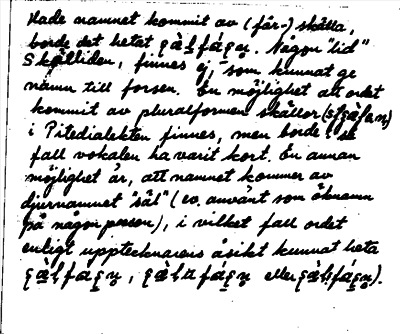 Hade namnet kommit av (får-) skälla,
borde det hetat
. Någon "lid"
Skälliden, finnes ej, som kunnat ge
namn till forsen. En möjlighet att ordet
kommit av pluralformen skällor
i Pitedialekten finnes, men borde i så
fall vokalen ha varit kort. En annan
möjlighet är, att namnet kommer av
djurnamnet "säl" (ev. använt som öknamn
på någon person), i vilket fall ordet
enligt upptecknarens åsikt kunnat heta
eller